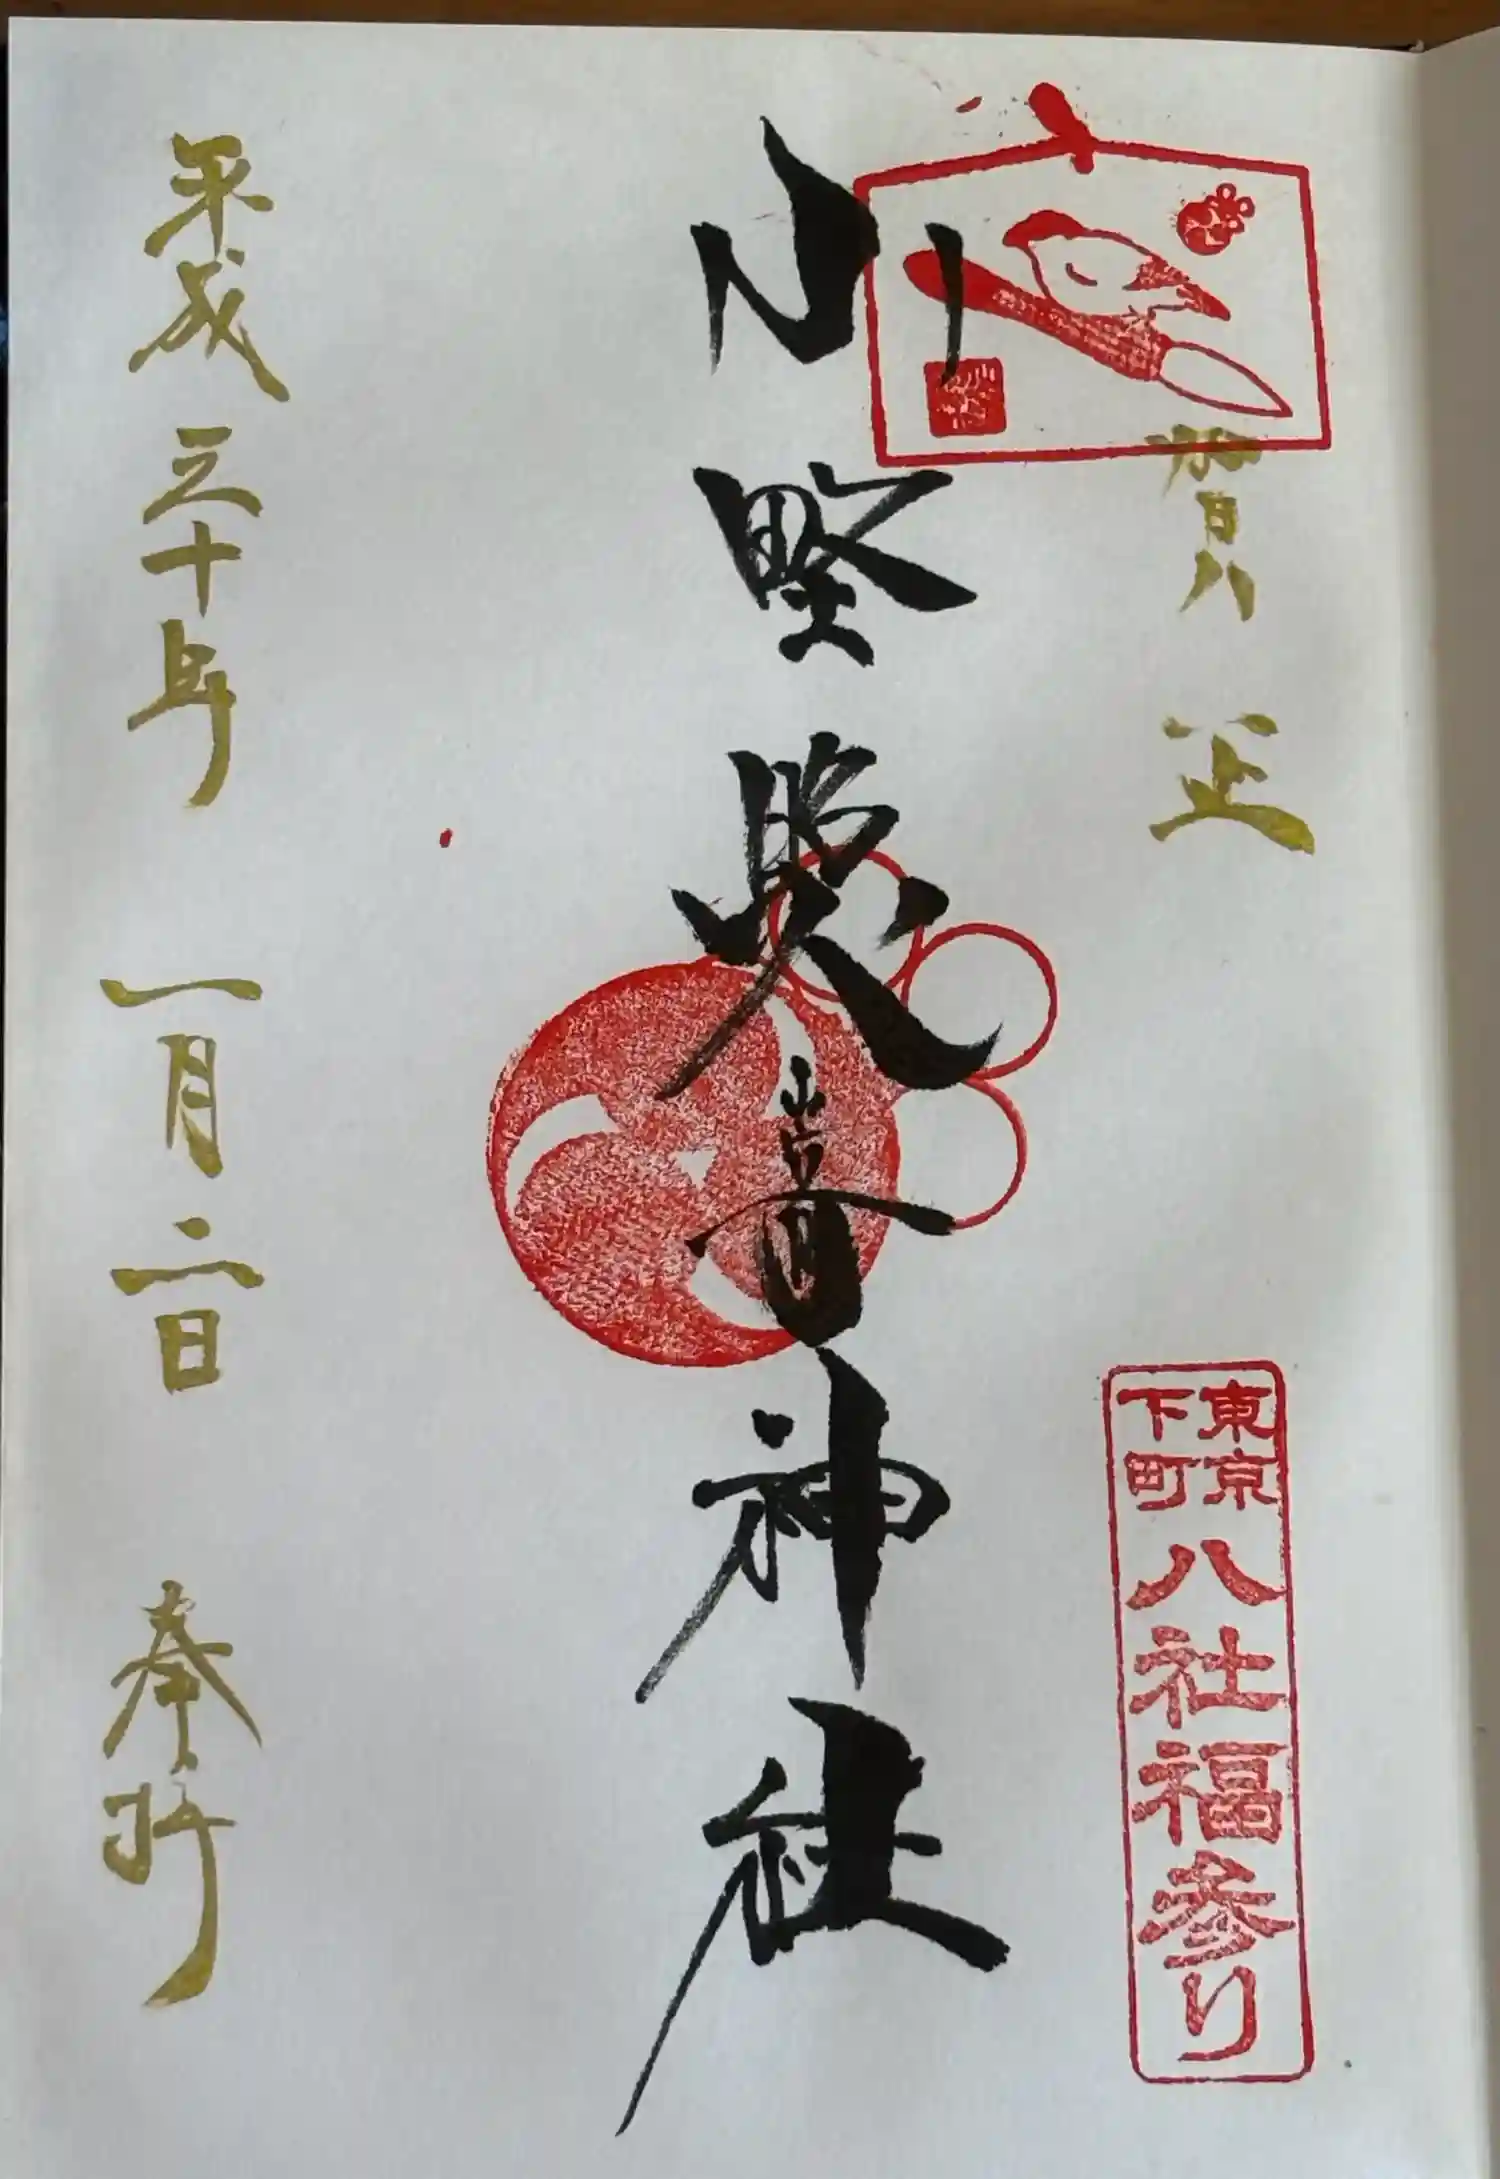 賀正
東京
下町
八社福参り
小野照嵜神社
平成三十年 一月二日 奉拝